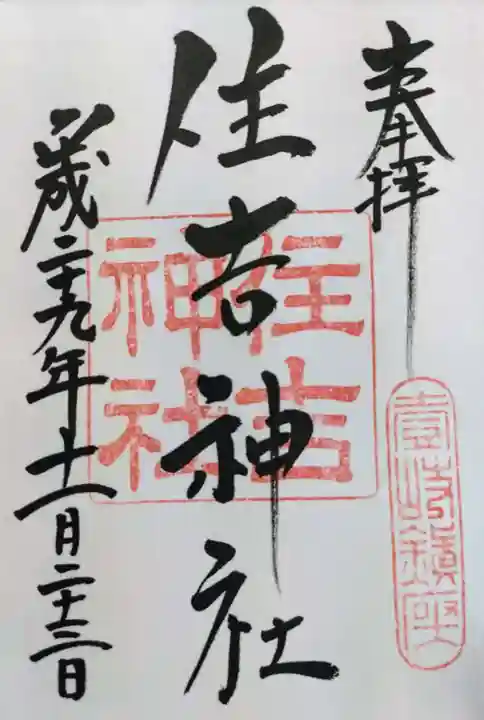 奉拝
壱岐鎮座
住吉神社
住吉
神社
平成二十九年十一月二十三日